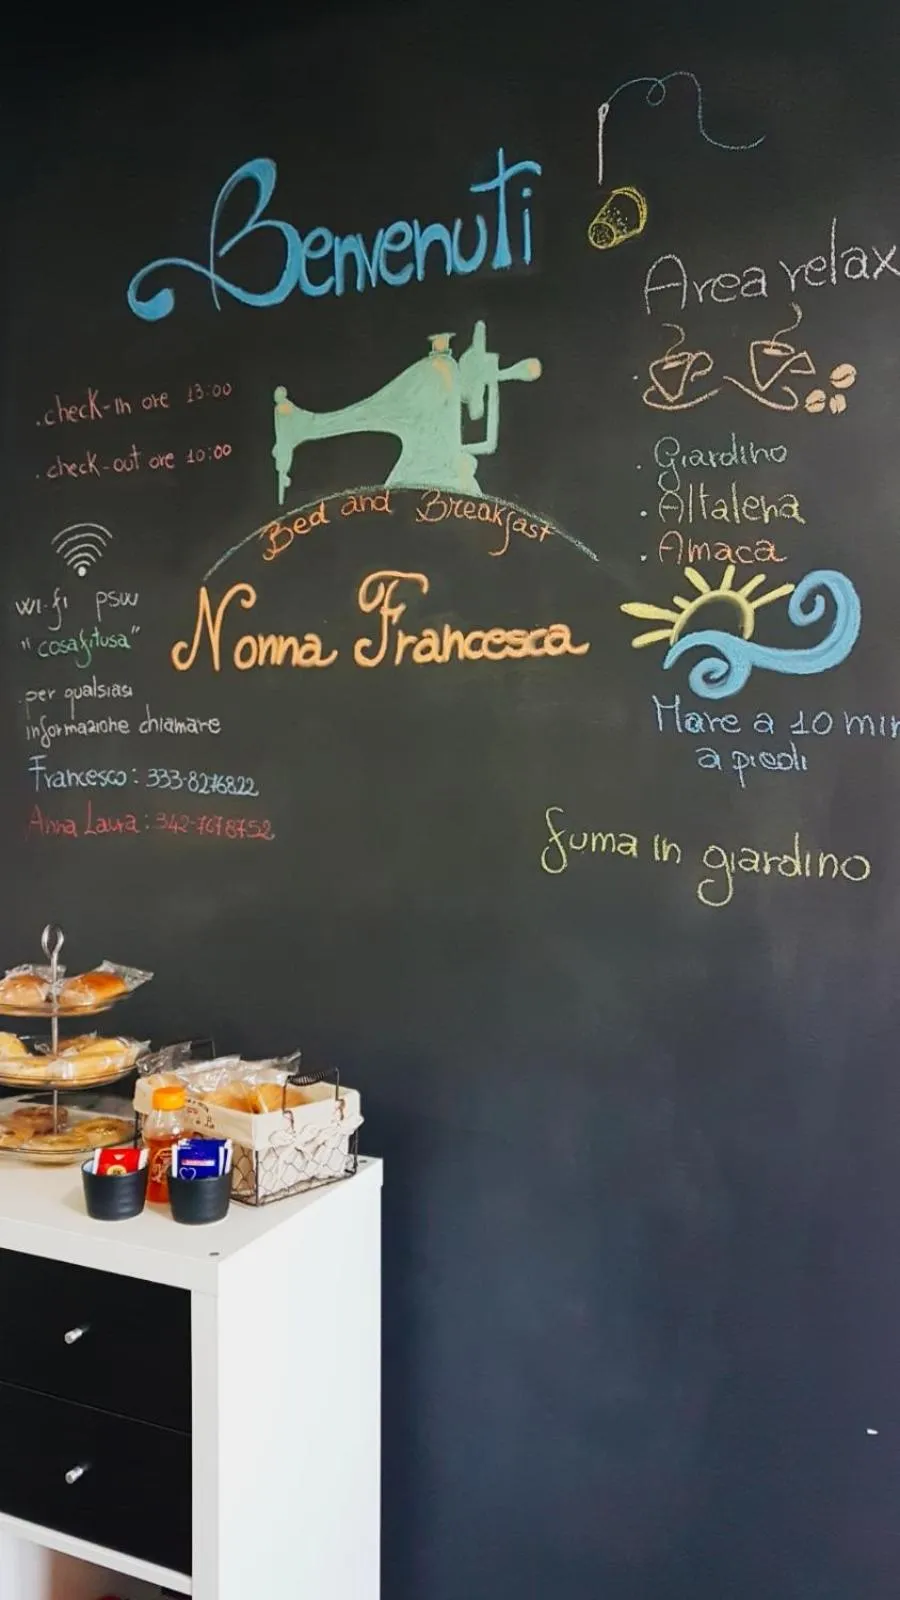 Benvenuti
.check-in ore 13:00
.check-out ore 10:00
Bed and Breakfast
Nonna Francesca
wi-fi psw
"cosafitusa"
per qualsiasi
informazione chiamare
Francesco: 333-8276822
Anna Laura: 342-7678752
Area relax
. Giardino
. Altalena
. Amaca
Mare a 10 min
a piedi
fuma in giardino